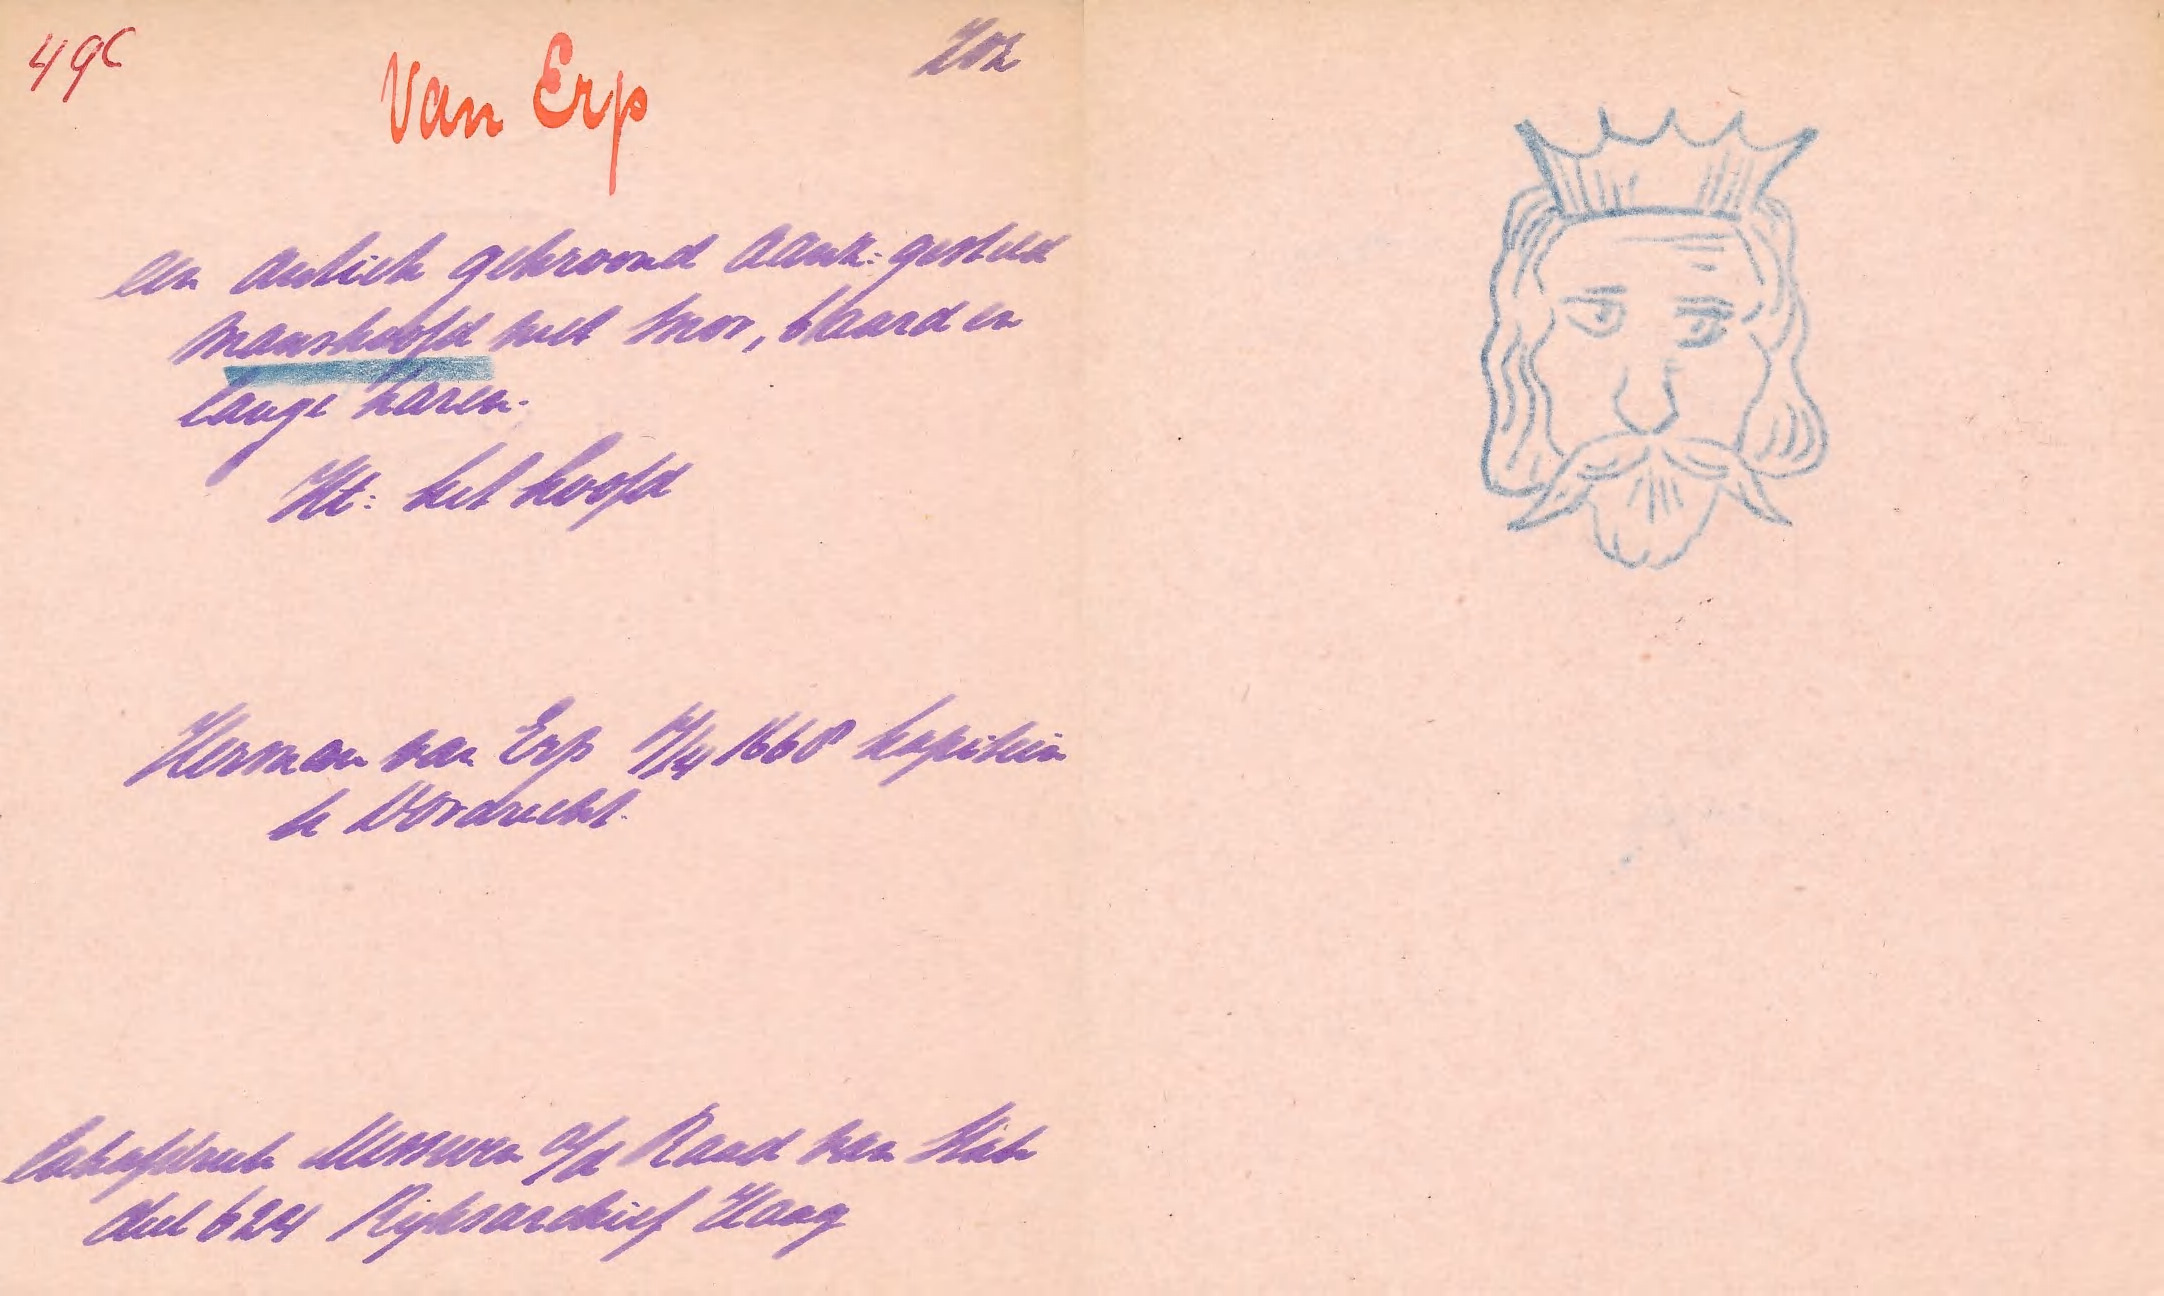 49c
Van Erp
een antiek gekroond aanz: gesteld
manshoofd met snor, baard en
lange haren.
Ht: het hoofd
Herman van Erp 1668 kapitein
te Dordrecht.
Lakafdruk Missiven a/d Raad van State
deel 624 Rijksarchief Haag